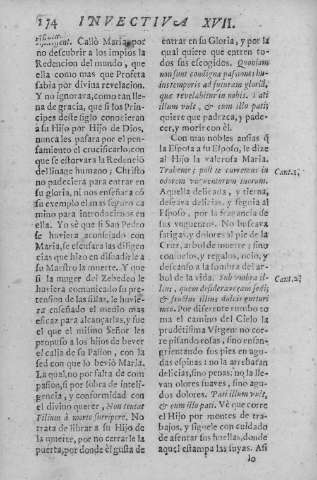 174 INVECTIVA XVII.
Calló Maria, por
no descubrir a los impios la
Redencion del mundo, que
ella como mas que Profeta
sabia por divina revelacion.
Y no ignorara, como tan lle-
na de gracia, que si los Prin-
cipes deste siglo conocieran
a su Hijo por Hijo de Dios,
nunca les pasara por el pen-
samiento el crucificarlo, con
que se estorvara la Redenciō
del linage humano; Christo
no padeciera para entrar en
su gloria, ni nos enseñara cō
su exemplo el mas seguro ca
mino para introducirnos en
ella. Yo sè que si San Pedro
se huviera aconsejado con
Maria, se escusara las diligen
cias que hizo en disuadirle a
su Maestro la muerte. Y que
si la muger del Zebedeo le
huviera comunicado su pre-
tension de las sillas, le huvie-
ra enseñado el medio mas
eficaz para alcançarlas, y fue
el que el mismo Señor les
propuso a los hijos de bever
el caliz de su Pasion, con la
sed con que lo beviò Maria.
La qual, no por falta de com
pasion, si por sobra de inteli-
gencia, y conformidad con
el divino querer, Non tentat
Filium à morte surripere. No
trata de librar a su Hijo de
la muerte, por no cerrarle la
puerta, por donde èl gusta de
entrar en su Gloria, y por la
qual quiere que entren to-
dos sus escogidos. Quoniam
non sunt condignæ pasiones hu-
ius temporis ad futuram gloriā,
que revelabitur in nobis. Pati
illum vult, & cum illo pati;
quiere que padezca, y pade-
cer, y morir con èl.
Con mas nobles ansias q̄
la Esposa a su Esposo, le dize
al Hijo la valerosa Maria.
Trabeme; post te curremus in
odorem vnguentorum tuorum. Cant. 1.
Aquella delicada, y tierna,
deseava delicias, y seguia al
Esposo, por la fragancia de
sus vnguentos. No buscava
fatigas, y dolores al pie de la
Cruz, arbol de muerte; sino
consuelos, y regalos, ocio, y
descanso a la sombra del ar-
bol de la vida. Sub vmbra il- Cant. 2.
lius, quem desideraveram sedi;
& fructus illius dulcis gutturi
meo. Por diferente rumbo to-
ma el camino del Cielo la
prudētisima Virgen: no cor-
re pisando rosas, sino ensan-
grientando sus pies en agu-
das espinas: no la arrebatan
delicias, sino penas; no la lle-
van olores suaves, sino agu-
dos dolores. Pati illum vult,
& cum illo pati. Vè que corre
el Hijo por montes de tra-
bajos, y siguele con cuidado
de asentar sus huellas, donde
aquel estampa las suyas. Asi
lo